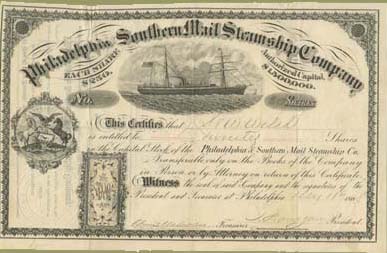 Philadelphia Southern Mail Steamship Company
EACH SHARE
$250.
Authorized Capital,
$1,500,000.
No.
Shares.
This Certifies that
is entitled to Shares
in the Capital Stock of the Philadelphia & Southern Mail Steamship Co.
Transferable only on the Books of the Company
in Person or by Attorney on return of this Certificate.
Witness the seal of said Company and the signatures of the
President and Treasurer at Philadelphia
Treasurer
President.